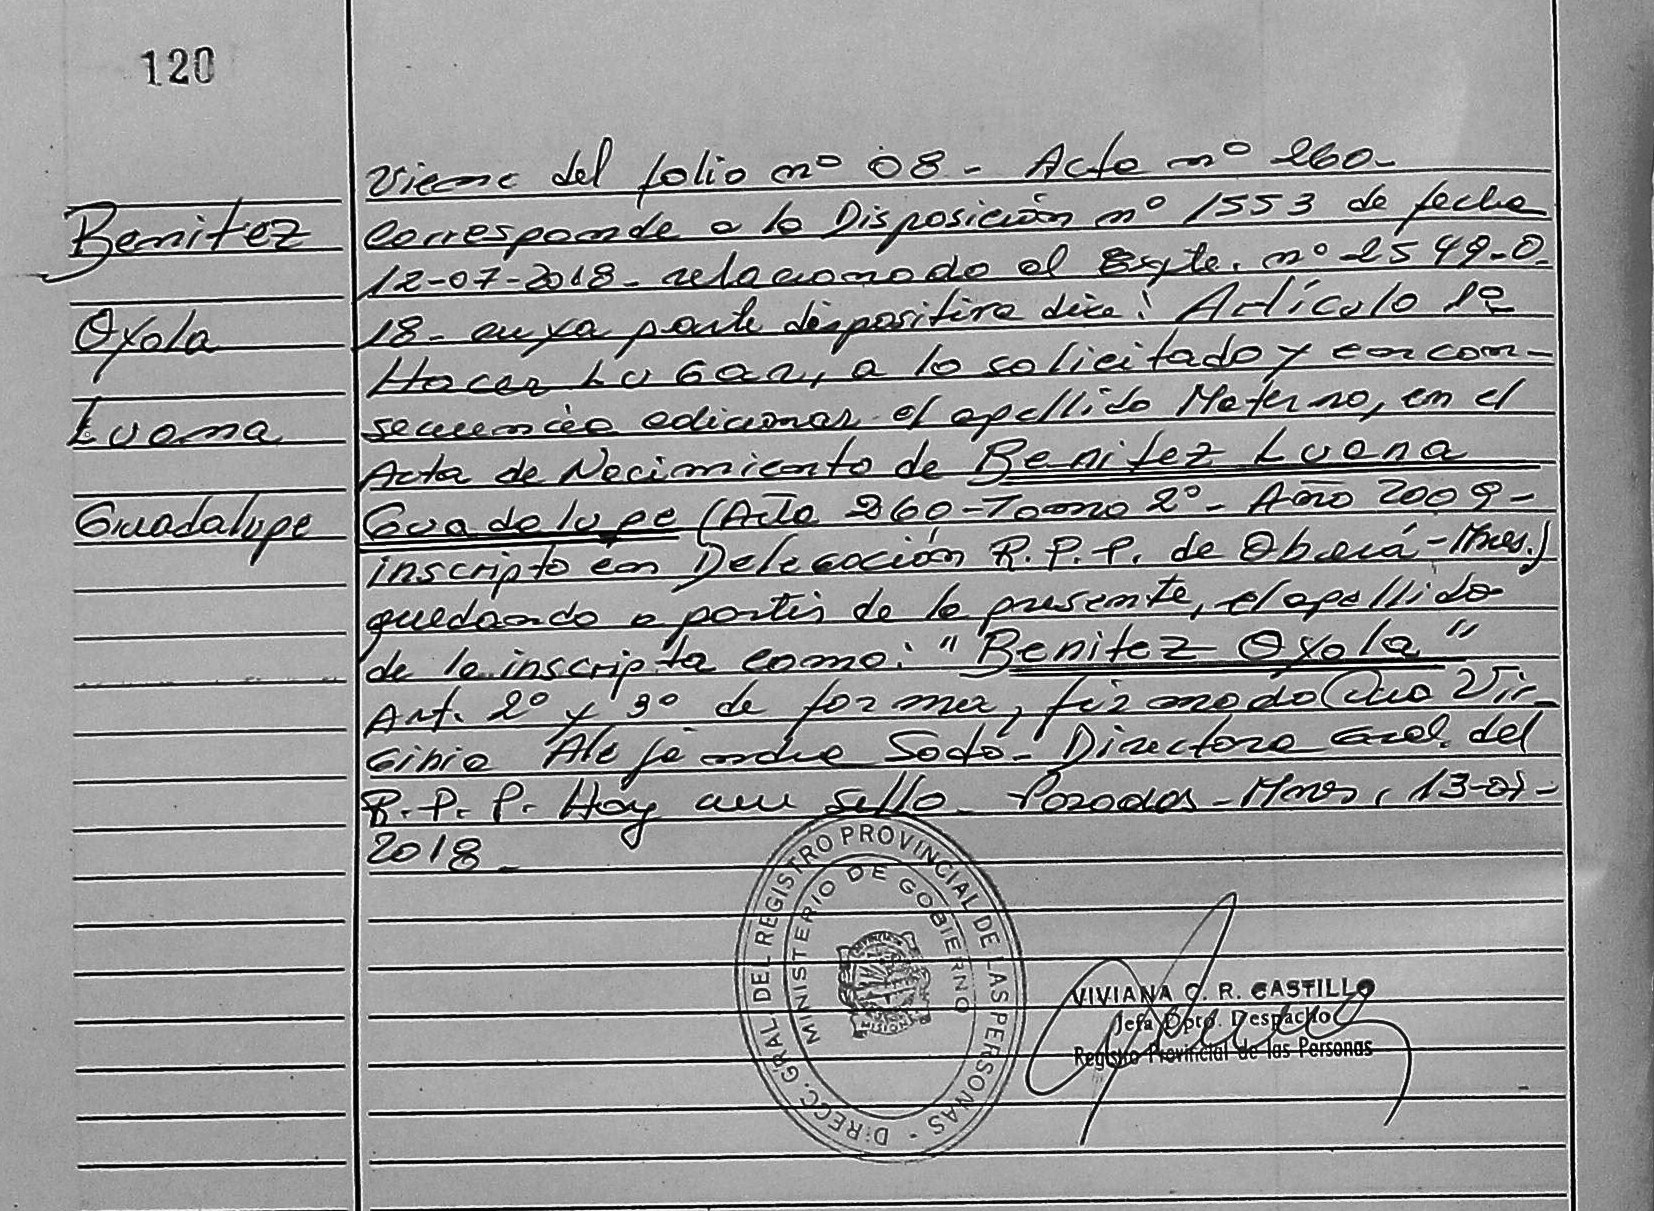 120
Benitez
Oyola
Luana
Guadalupe
Viene del folio nº 08 - Acta nº 260-
corresponde a la Disposición nº 1553 de fecha
12-07-2018- relacionado al Expte. nº 2549-O-
18- cuya parte dispositiva dice: Artículo 1º
Hacer LuGar, a lo solicitado y en con-
secuencia adicionar el apellido Materno, en el
Acta de Nacimiento de Benitez Luana
Guadalupe (Acta 260-Tomo 2º- Año 2009-
inscripto en Delegación R.P.P. de Oberá-Mnes.)
quedando a partir de la presente, el apellido
de la inscripta como: "Benitez Oyola"
Art. 2º y 3º de forma, firmado Ana Vir-
ginia Alejandra Soto- Directora Gral. del
R.P.P. Hay un sello- Posadas-Mnes,
2018-
DIRECC. GRAL DEL REGISTRO PROVINCIAL DE LAS PERSONAS -
MINISTERIO DE GOBIERNO
MISIONES
VIVIANA C. R. CASTILLO
Jefa Dpto. Despacho
Registro Provincial de las Personas